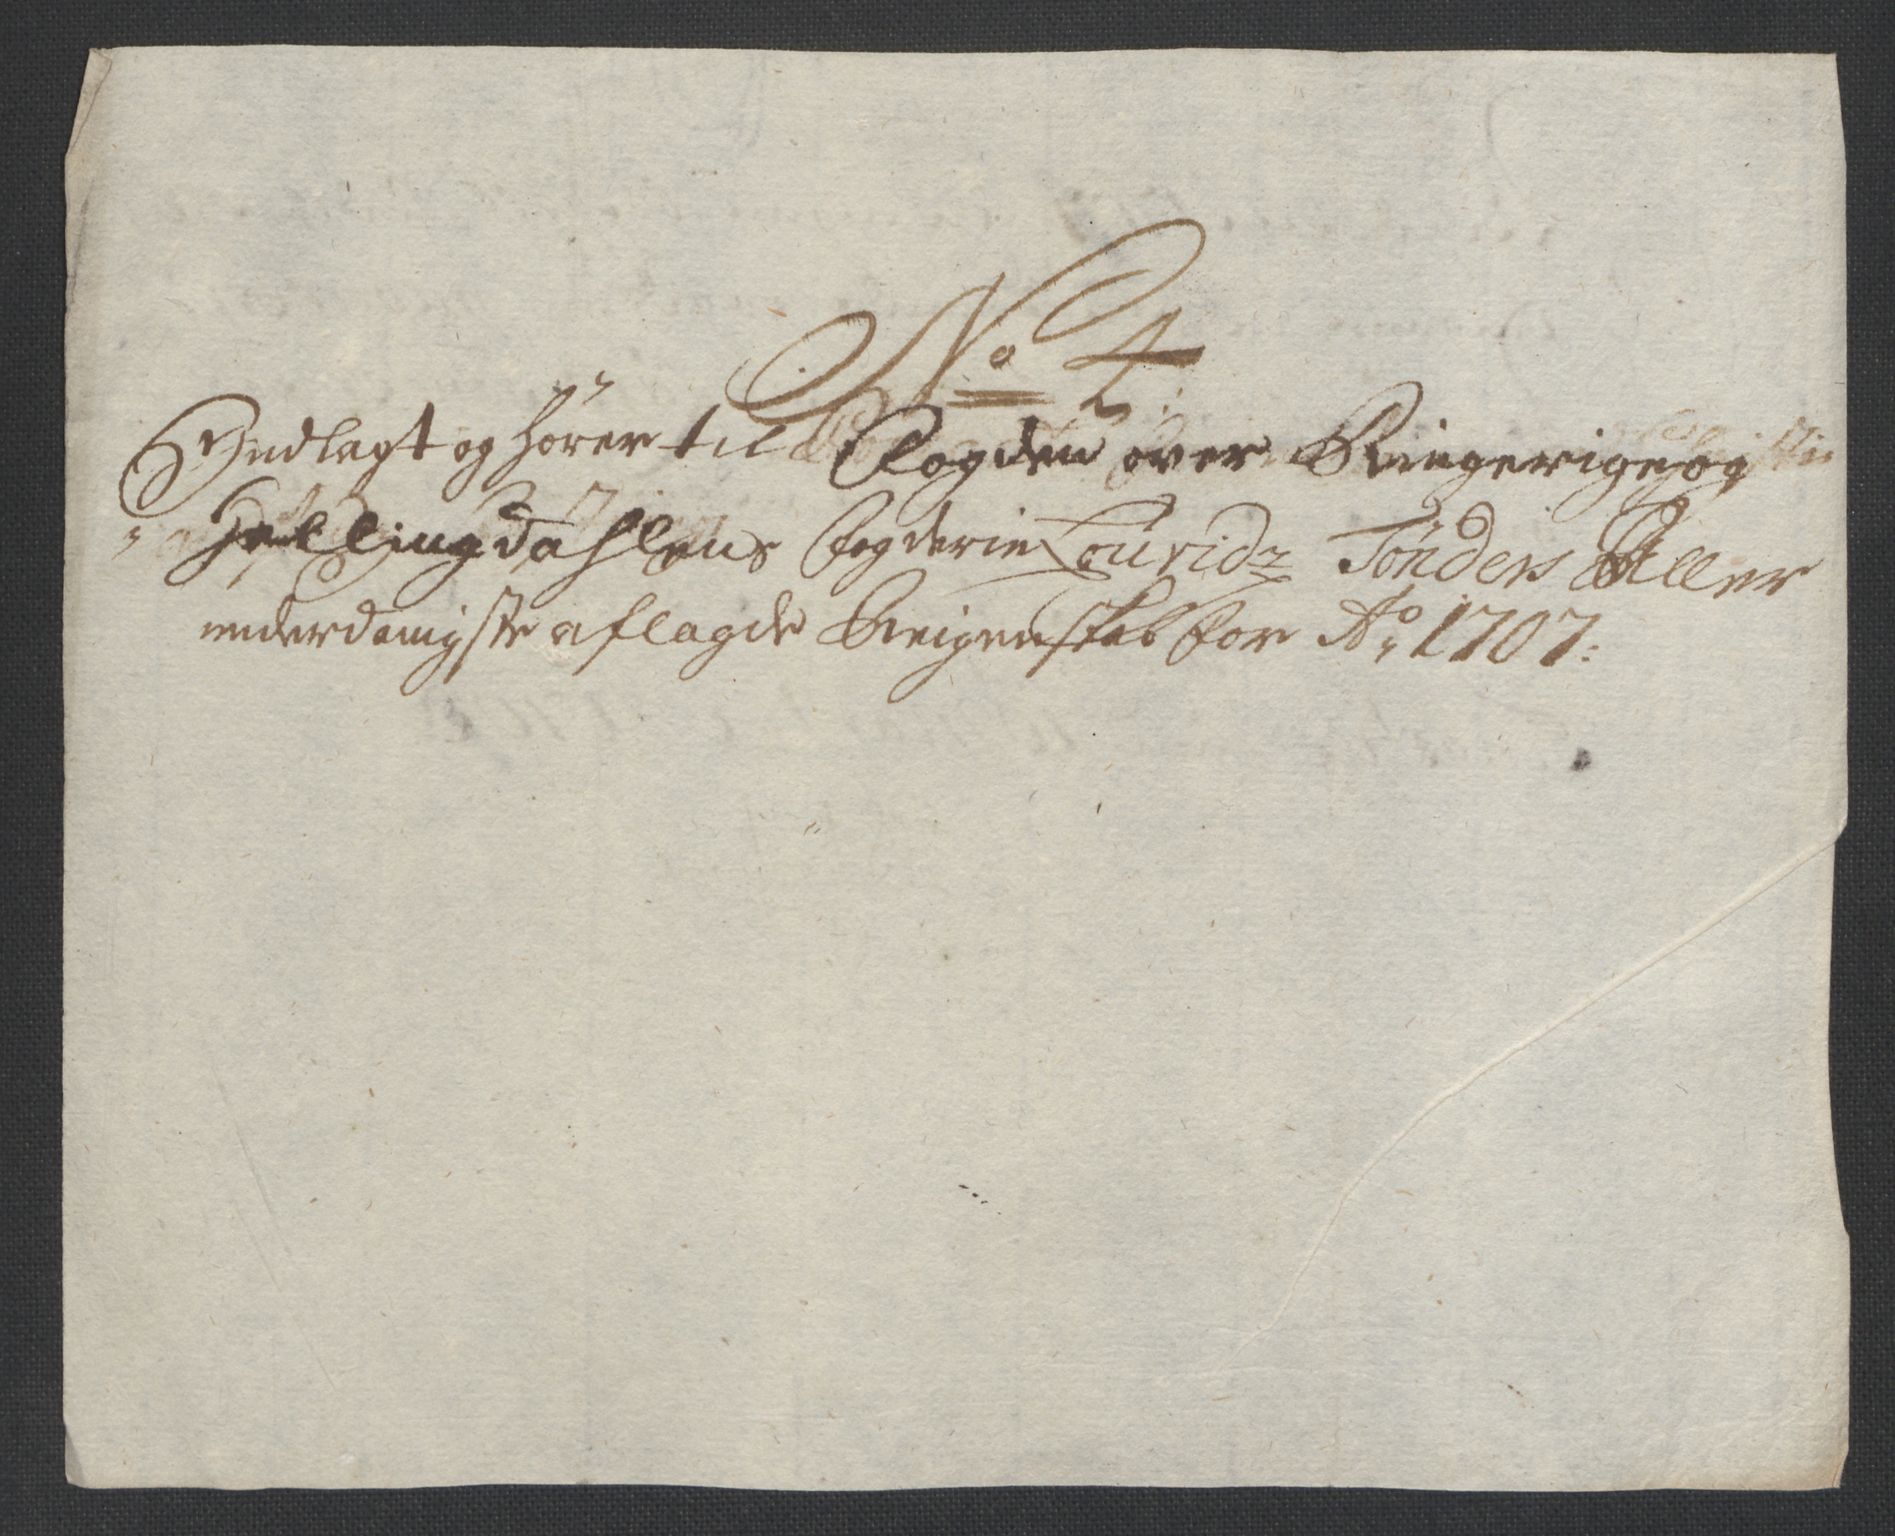 No 4:
Indlagt og hører til Fogden over Ringerige og
Hallingdahlens fogderie Louridz Tønders Aller
underdanigste aflagde Reigenskab for Ao 1707: